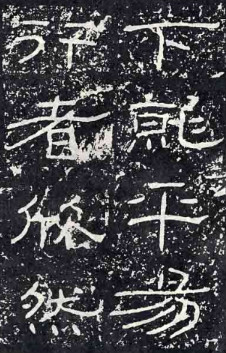 下就平易
行者欣然